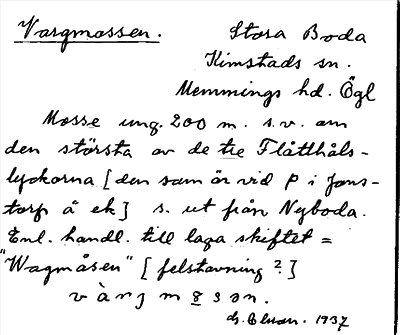 Vargmossen.
Stora Boda
Kimstads sn.
Memmings hd. Ögl
Mosse ung. 200 m. s.v. om
den största av de tre Flåtthåls-
lyckorna [den som är vid p i Jons-
torp å ek] s. ut från Nyboda.
Enl. handl. till laga skiftet =
"Wagmåsen" [felstavning?]
1937